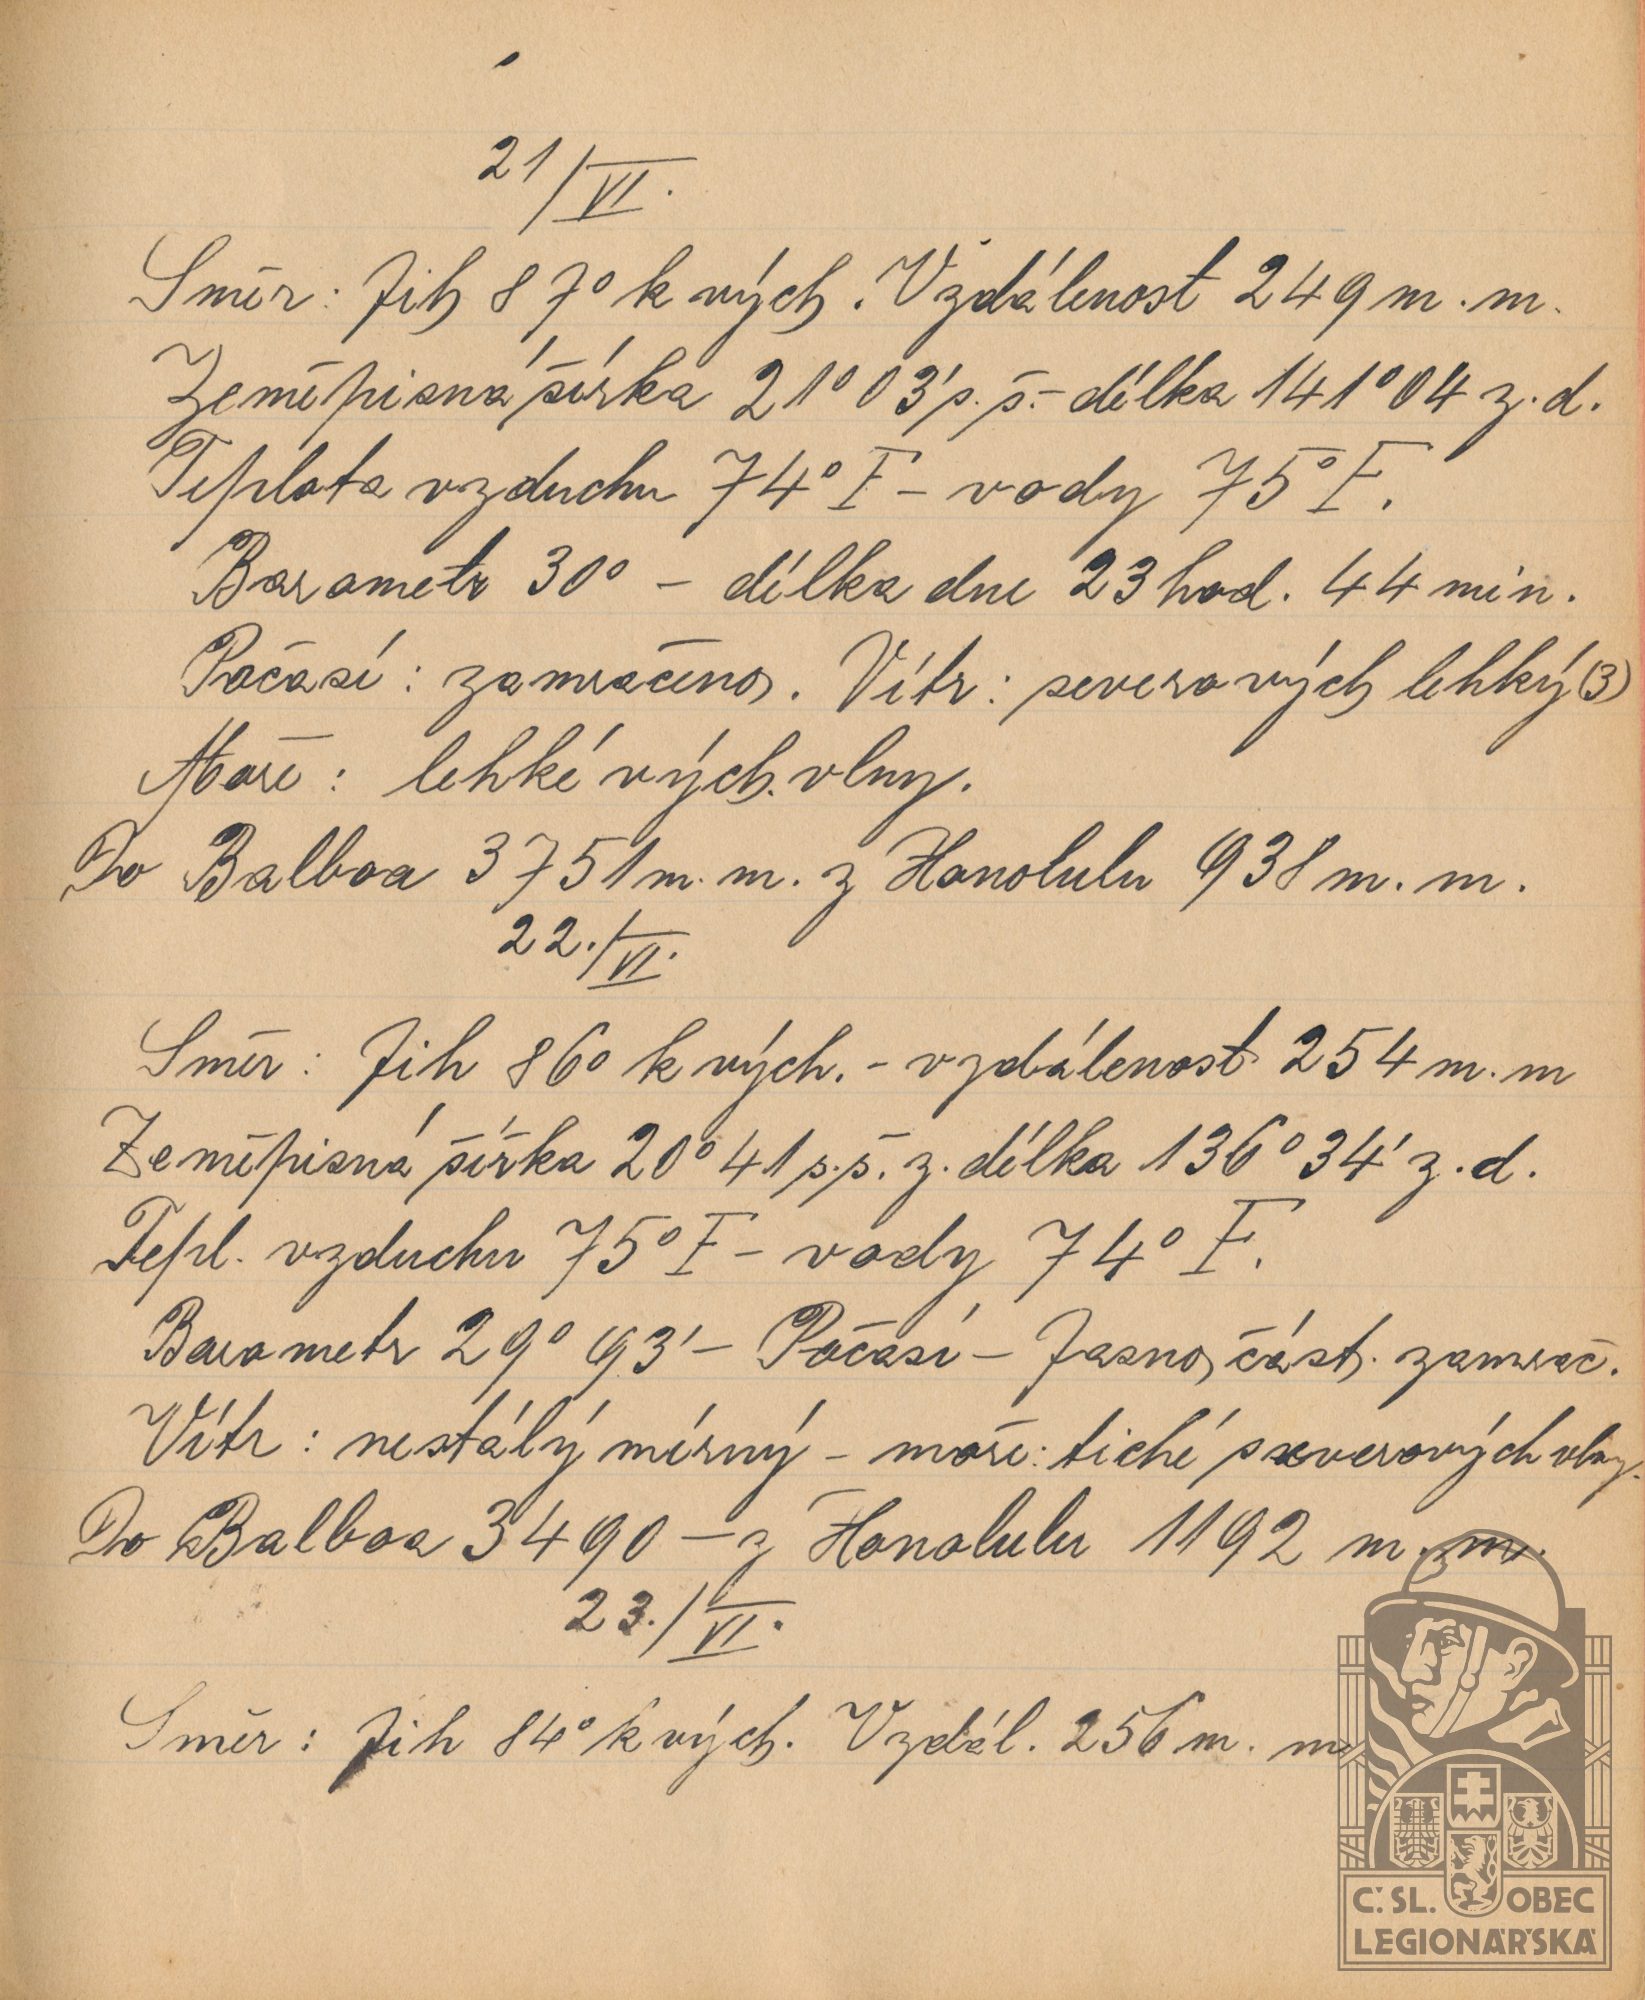 21/VI.
Směr: Jih 87° k vých. Vzdálenost 249 m. m.
Zeměpisná šířka 21° 03' s. š. – délka 141° 04 z. d.
Teplota vzduchu 74° F – vody 75° F.
Barometr 30° – délka dne 23 hod. 44 min.
Počasí: zamračeno. Vítr: severových lehký (3)
Moře: lehké vých. vlny.
Do Balboa 3751 m. m. z Honolulu 938 m. m.
22./VI.
Směr: Jih 86° k vých. – vzdálenost 254 m. m
Zeměpisná šířka 20° 41 s. š. z. délka 136° 34' z. d.
Tepl. vzduchu 75° F – vody 74° F.
Barometr 29° 93' – Počasí – Jasno, část. zamrač.
Vítr: nestálý mírný – moře: tiché severových vlny.
Do Balboa 3490 – z Honolulu 1192 m. m.
23./VI.
Směr: Jih 84° k vých. Vzdál. 256 m. m
Č. SL. OBEC
LEGIONÁŘSKÁ